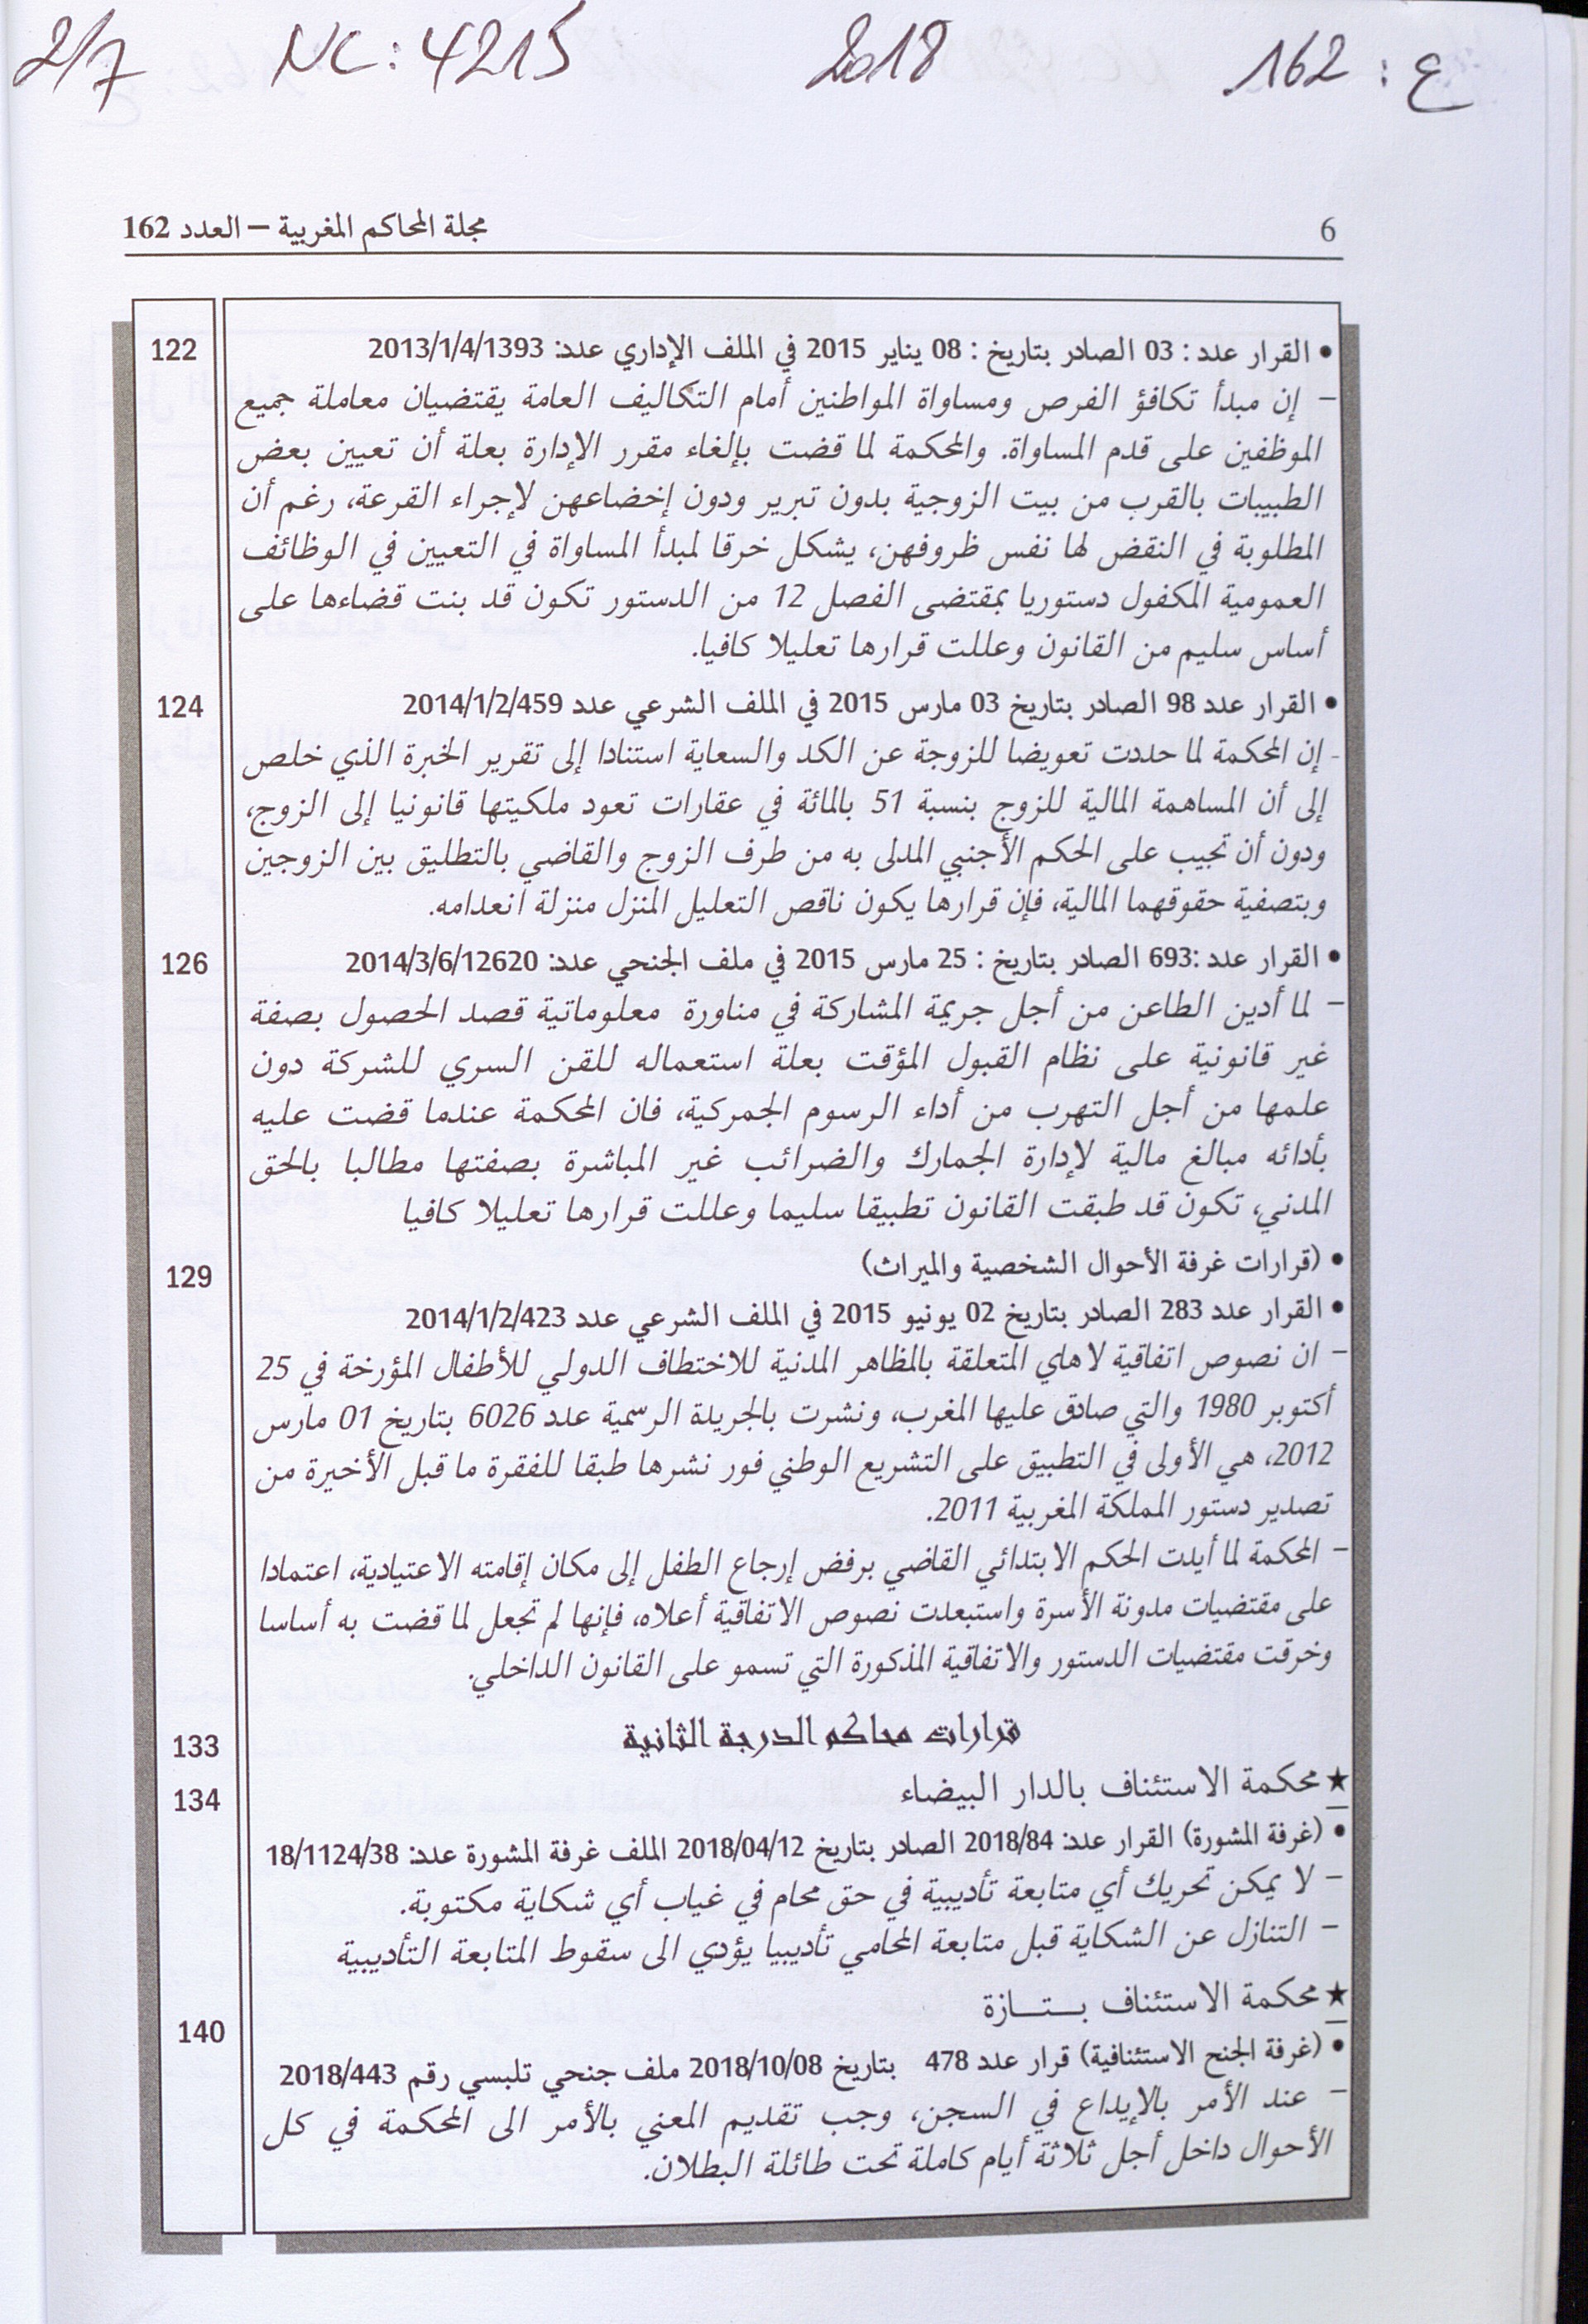 2/7 NC: 4215 2018 ع : 162
6 مجلة المحاكم المغربية – العدد 162
• القرار عدد : 03 الصادر بتاريخ : 08 يناير 2015 في الملف الإداري عدد: 2013/1/4/1393 122
– إن مبدأ تكافؤ الفرص ومساواة المواطنين أمام التكاليف العامة يقتضيان معاملة جميع
الموظفين على قدم المساواة. والمحكمة لما قضت بإلغاء مقرر الإدارة بعلة أن تعيين بعض
الطبيبات بالقرب من بيت الزوجية بدون تبرير ودون إخضاعهن لإجراء القرعة، رغم أن
المطلوبة في النقض لها نفس ظروفهن، يشكل خرقا لمبدأ المساواة في التعيين في الوظائف
العمومية المكفول دستوريا بمقتضى الفصل 12 من الدستور تكون قد بنت قضاءها على
أساس سليم من القانون وعللت قرارها تعليلا كافيا.
• القرار عدد 98 الصادر بتاريخ 03 مارس 2015 في الملف الشرعي عدد 2014/1/2/459 124
- إن المحكمة لما حددت تعويضا للزوجة عن الكد والسعاية استنادا إلى تقرير الخبرة الذي خلص
إلى أن المساهمة المالية للزوج بنسبة 51 بالمائة في عقارات تعود ملكيتها قانونيا إلى الزوج،
ودون أن تجيب على الحكم الأجنبي المدلى به من طرف الزوج والقاضي بالتطليق بين الزوجين
وبتصفية حقوقهما المالية، فإن قرارها يكون ناقص التعليل المنزل منزلة انعدامه.
• القرار عدد :693 الصادر بتاريخ : 25 مارس 2015 في ملف الجنحي عدد: 2014/3/6/12620 126
– لما أدين الطاعن من أجل جريمة المشاركة في مناورة معلوماتية قصد الحصول بصفة
غير قانونية على نظام القبول المؤقت بعلة استعماله للقن السري للشركة دون
علمها من أجل التهرب من أداء الرسوم الجمركية، فان المحكمة عندما قضت عليه
بأدائه مبالغ مالية لإدارة الجمارك والضرائب غير المباشرة بصفتها مطالبا بالحق
المدني، تكون قد طبقت القانون تطبيقا سليما وعللت قرارها تعليلا كافيا
• (قرارات غرفة الأحوال الشخصية والميراث) 129
• القرار عدد 283 الصادر بتاريخ 02 يونيو 2015 في الملف الشرعي عدد 2014/1/2/423
– ان نصوص اتفاقية لاهاي المتعلقة بالمظاهر المدنية للاختطاف الدولي للأطفال المؤرخة في 25
أكتوبر 1980 والتي صادق عليها المغرب، ونشرت بالجريدة الرسمية عدد 6026 بتاريخ 01 مارس
2012، هي الأولى في التطبيق على التشريع الوطني فور نشرها طبقا للفقرة ما قبل الأخيرة من
تصدير دستور المملكة المغربية 2011.
– المحكمة لما أيدت الحكم الابتدائي القاضي برفض إرجاع الطفل إلى مكان إقامته الاعتيادية، اعتمادا
على مقتضيات مدونة الأسرة واستبعدت نصوص الاتفاقية أعلاه، فإنها لم تجعل لما قضت به أساسا
وخرقت مقتضيات الدستور والاتفاقية المذكورة التي تسمو على القانون الداخلي.
قرارات محاكم الدرجة الثانية 133
★ محكمة الاستئناف بالدار البيضاء 134
• (غرفة المشورة) القرار عدد: 2018/84 الصادر بتاريخ 2018/04/12 الملف غرفة المشورة عدد: 18/1124/38
– لا يمكن تحريك أي متابعة تأديبية في حق محام في غياب أي شكاية مكتوبة.
– التنازل عن الشكاية قبل متابعة المحامي تأديبيا يؤدي الى سقوط المتابعة التأديبية
★ محكمة الاستئناف بـــتـــازة 140
• (غرفة الجنح الاستئنافية) قرار عدد 478 بتاريخ 2018/10/08 ملف جنحي تلبسي رقم 2018/443
– عند الأمر بالإيداع في السجن، وجب تقديم المعني بالأمر الى المحكمة في كل
الأحوال داخل أجل ثلاثة أيام كاملة تحت طائلة البطلان.